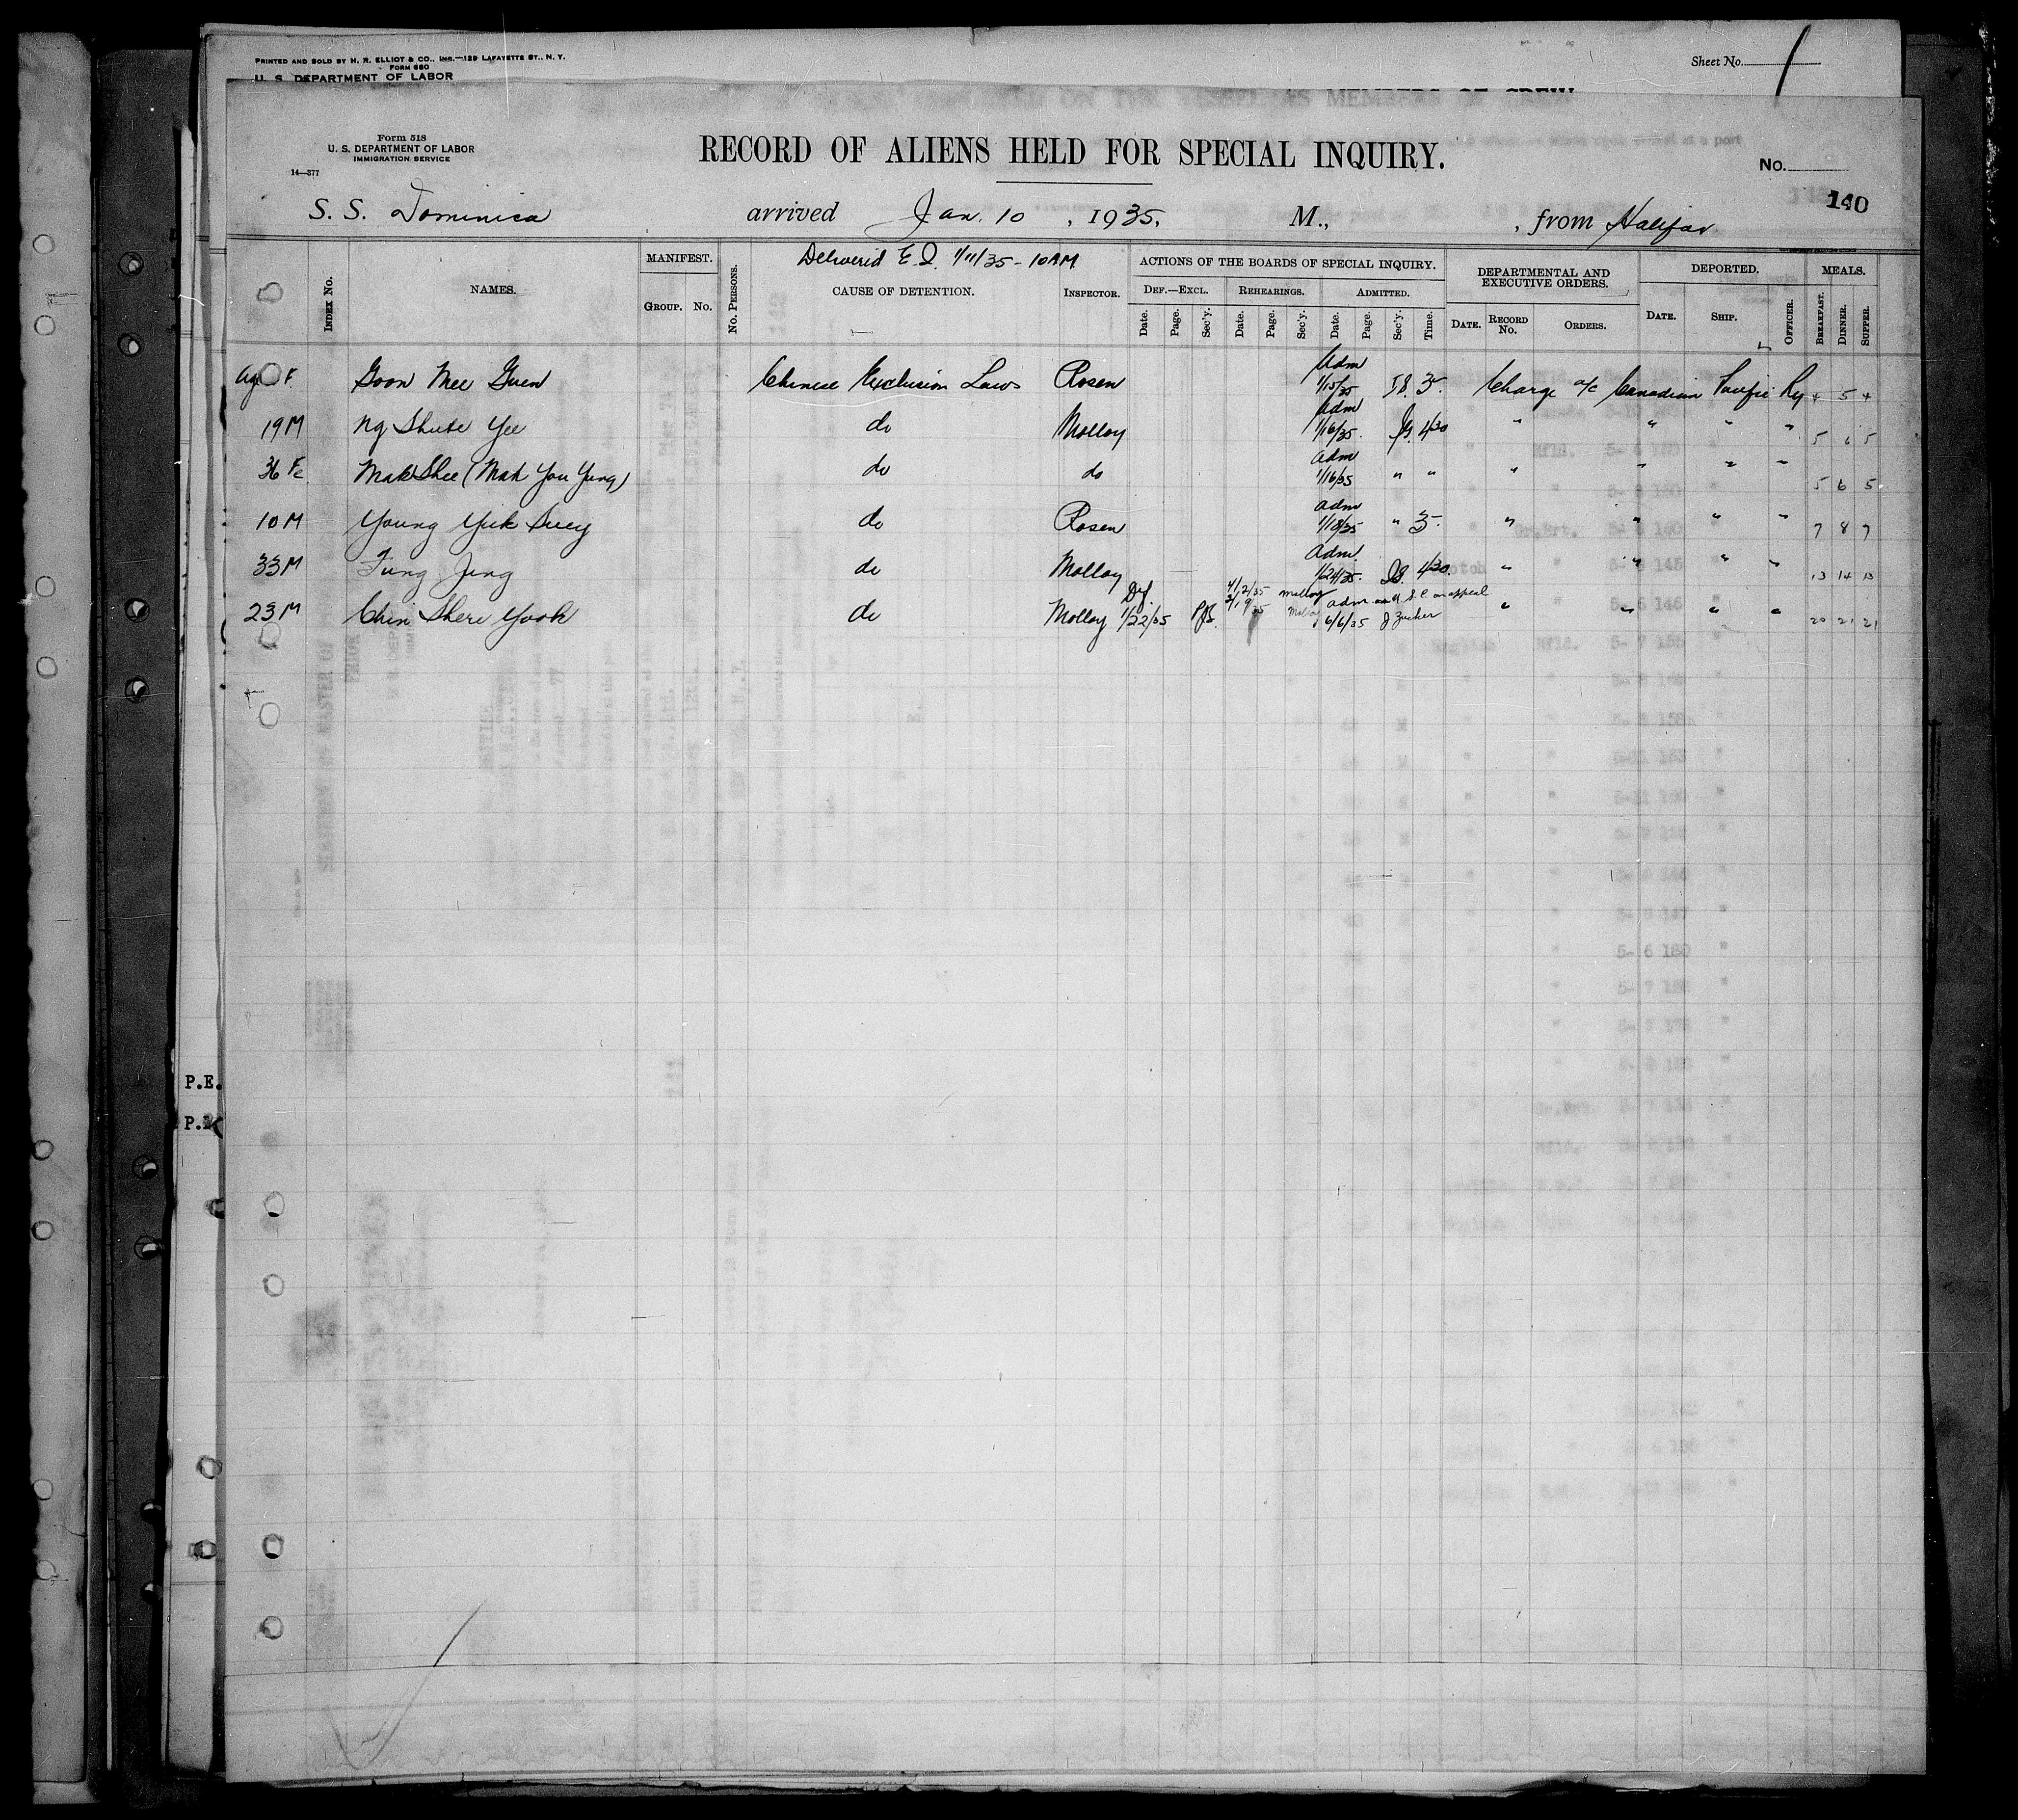 PRINTED AND SOLD BY H. R. ELLIOT & CO., INC.—129 LAFAYETTE ST., N. Y.
FORM 680
U. S. DEPARTMENT OF LABOR
Sheet No. 1
Form 518
U. S. DEPARTMENT OF LABOR
IMMIGRATION SERVICE
14—377
RECORD OF ALIENS HELD FOR SPECIAL INQUIRY.
No.
140
S. S. Dominica arrived Jan. 10, 1935, M., , from Halifax
Delivered E. I. 1/11/35 - 10 AM
INDEX No. NAMES. MANIFEST. GROUP. No. No. PERSONS. CAUSE OF DETENTION. INSPECTOR. ACTIONS OF THE BOARDS OF SPECIAL INQUIRY. DEF.—EXCL. Date. Page. Sec'y. REHEARINGS. Date. Page. Sec'y. ADMITTED. Date. Page. Sec'y. Time. DEPARTMENTAL AND EXECUTIVE ORDERS. DATE. RECORD No. ORDERS. DEPORTED. DATE. SHIP. OFFICER. MEALS. BREAKFAST. DINNER. SUPPER.
F. Goon Mee Guen Chinese Exclusion Laws Rosen Adm 1/15/35 3- Charge a/c Canadian Pacific Ry 4 5 4
19 M Ng Shute Yee do Molloy Adm 1/16/35. 430 " " " " 5 6 5
36 Fe Mak Shee (Mak You Yung) do do Adm 1/16/35 " " " " " " 5 6 5
10 M Young Yuk Suey do Rosen Adm 1/18/35 " 3- " " " " 7 8 7
33 M Fung Jung do Molloy Adm. 1/24/35. 430. " " " " 13 14 13
23 M Chin Sheri Yook do Molloy Def 1/22/35 Molloy adm on appeal 6/6/35 J Zucker " " " " 20 21 21
P.E.